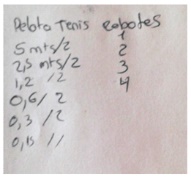 Pelota Tenis rebotes
5 mts/2 1
2,5 mts/2 2
1,2 /2 3
0,6/ 2 4
0,3 /2
0,15 //